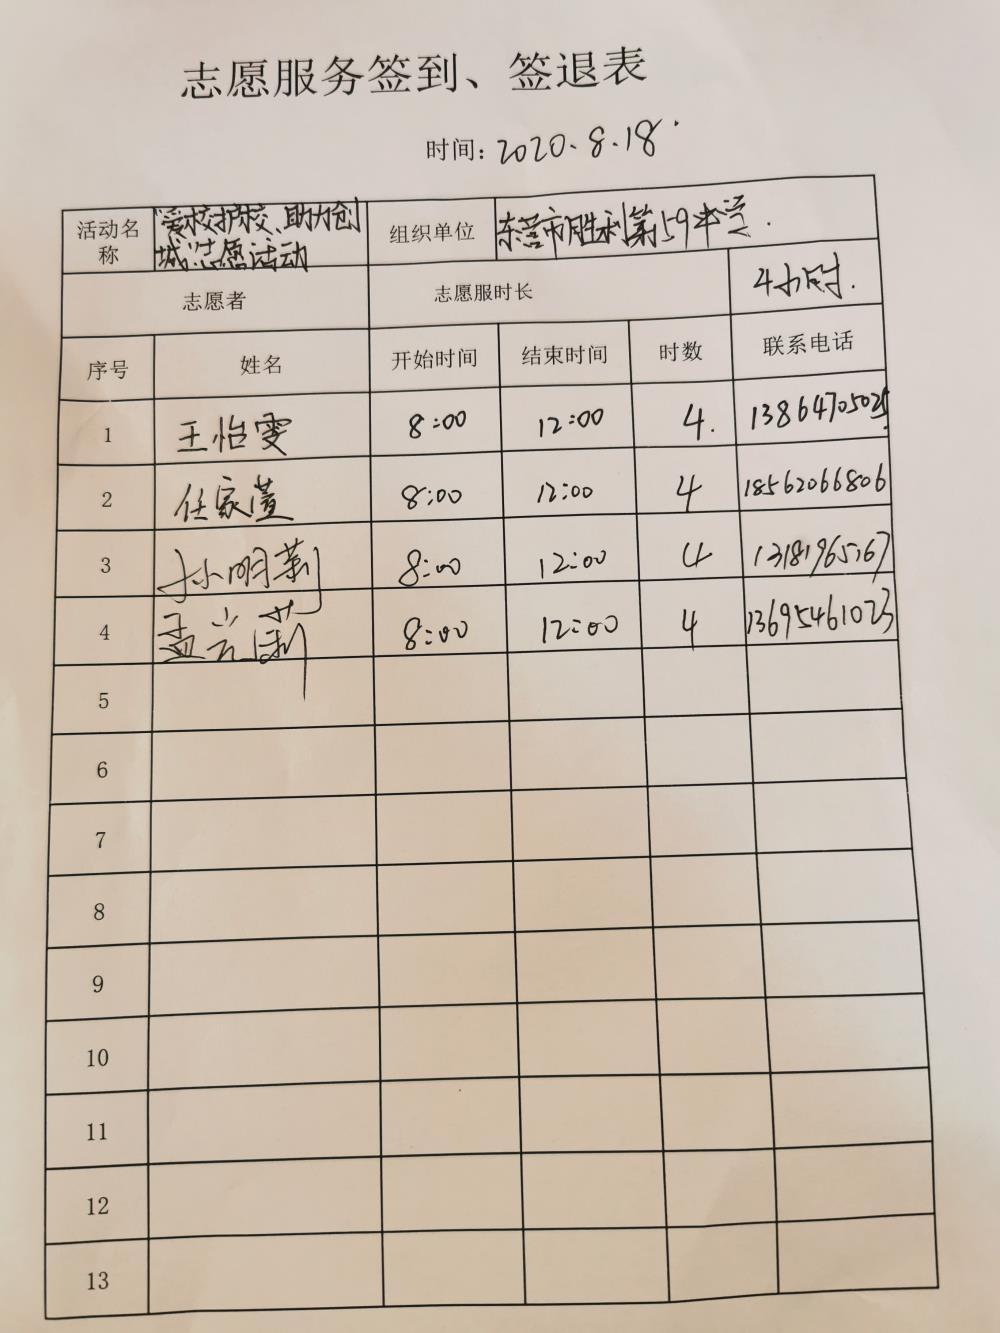 志愿服务签到、签退表
时间：2020.8.18.
活动名称 "爱校护校、助力创城"志愿活动 组织单位 东营市胜利第59中学.
志愿者 志愿服时长 4小时.
序号 姓名 开始时间 结束时间 时数 联系电话
1 王怡雯 8:00 12:00 4. 13864705025
2 任家萱 8:00 12:00 4 18562066806
3 孙明莉 8:00 12:00 4 13181965767
4 孟云莉 8:00 12:00 4 13695461023
5
6
7
8
9
10
11
12
13